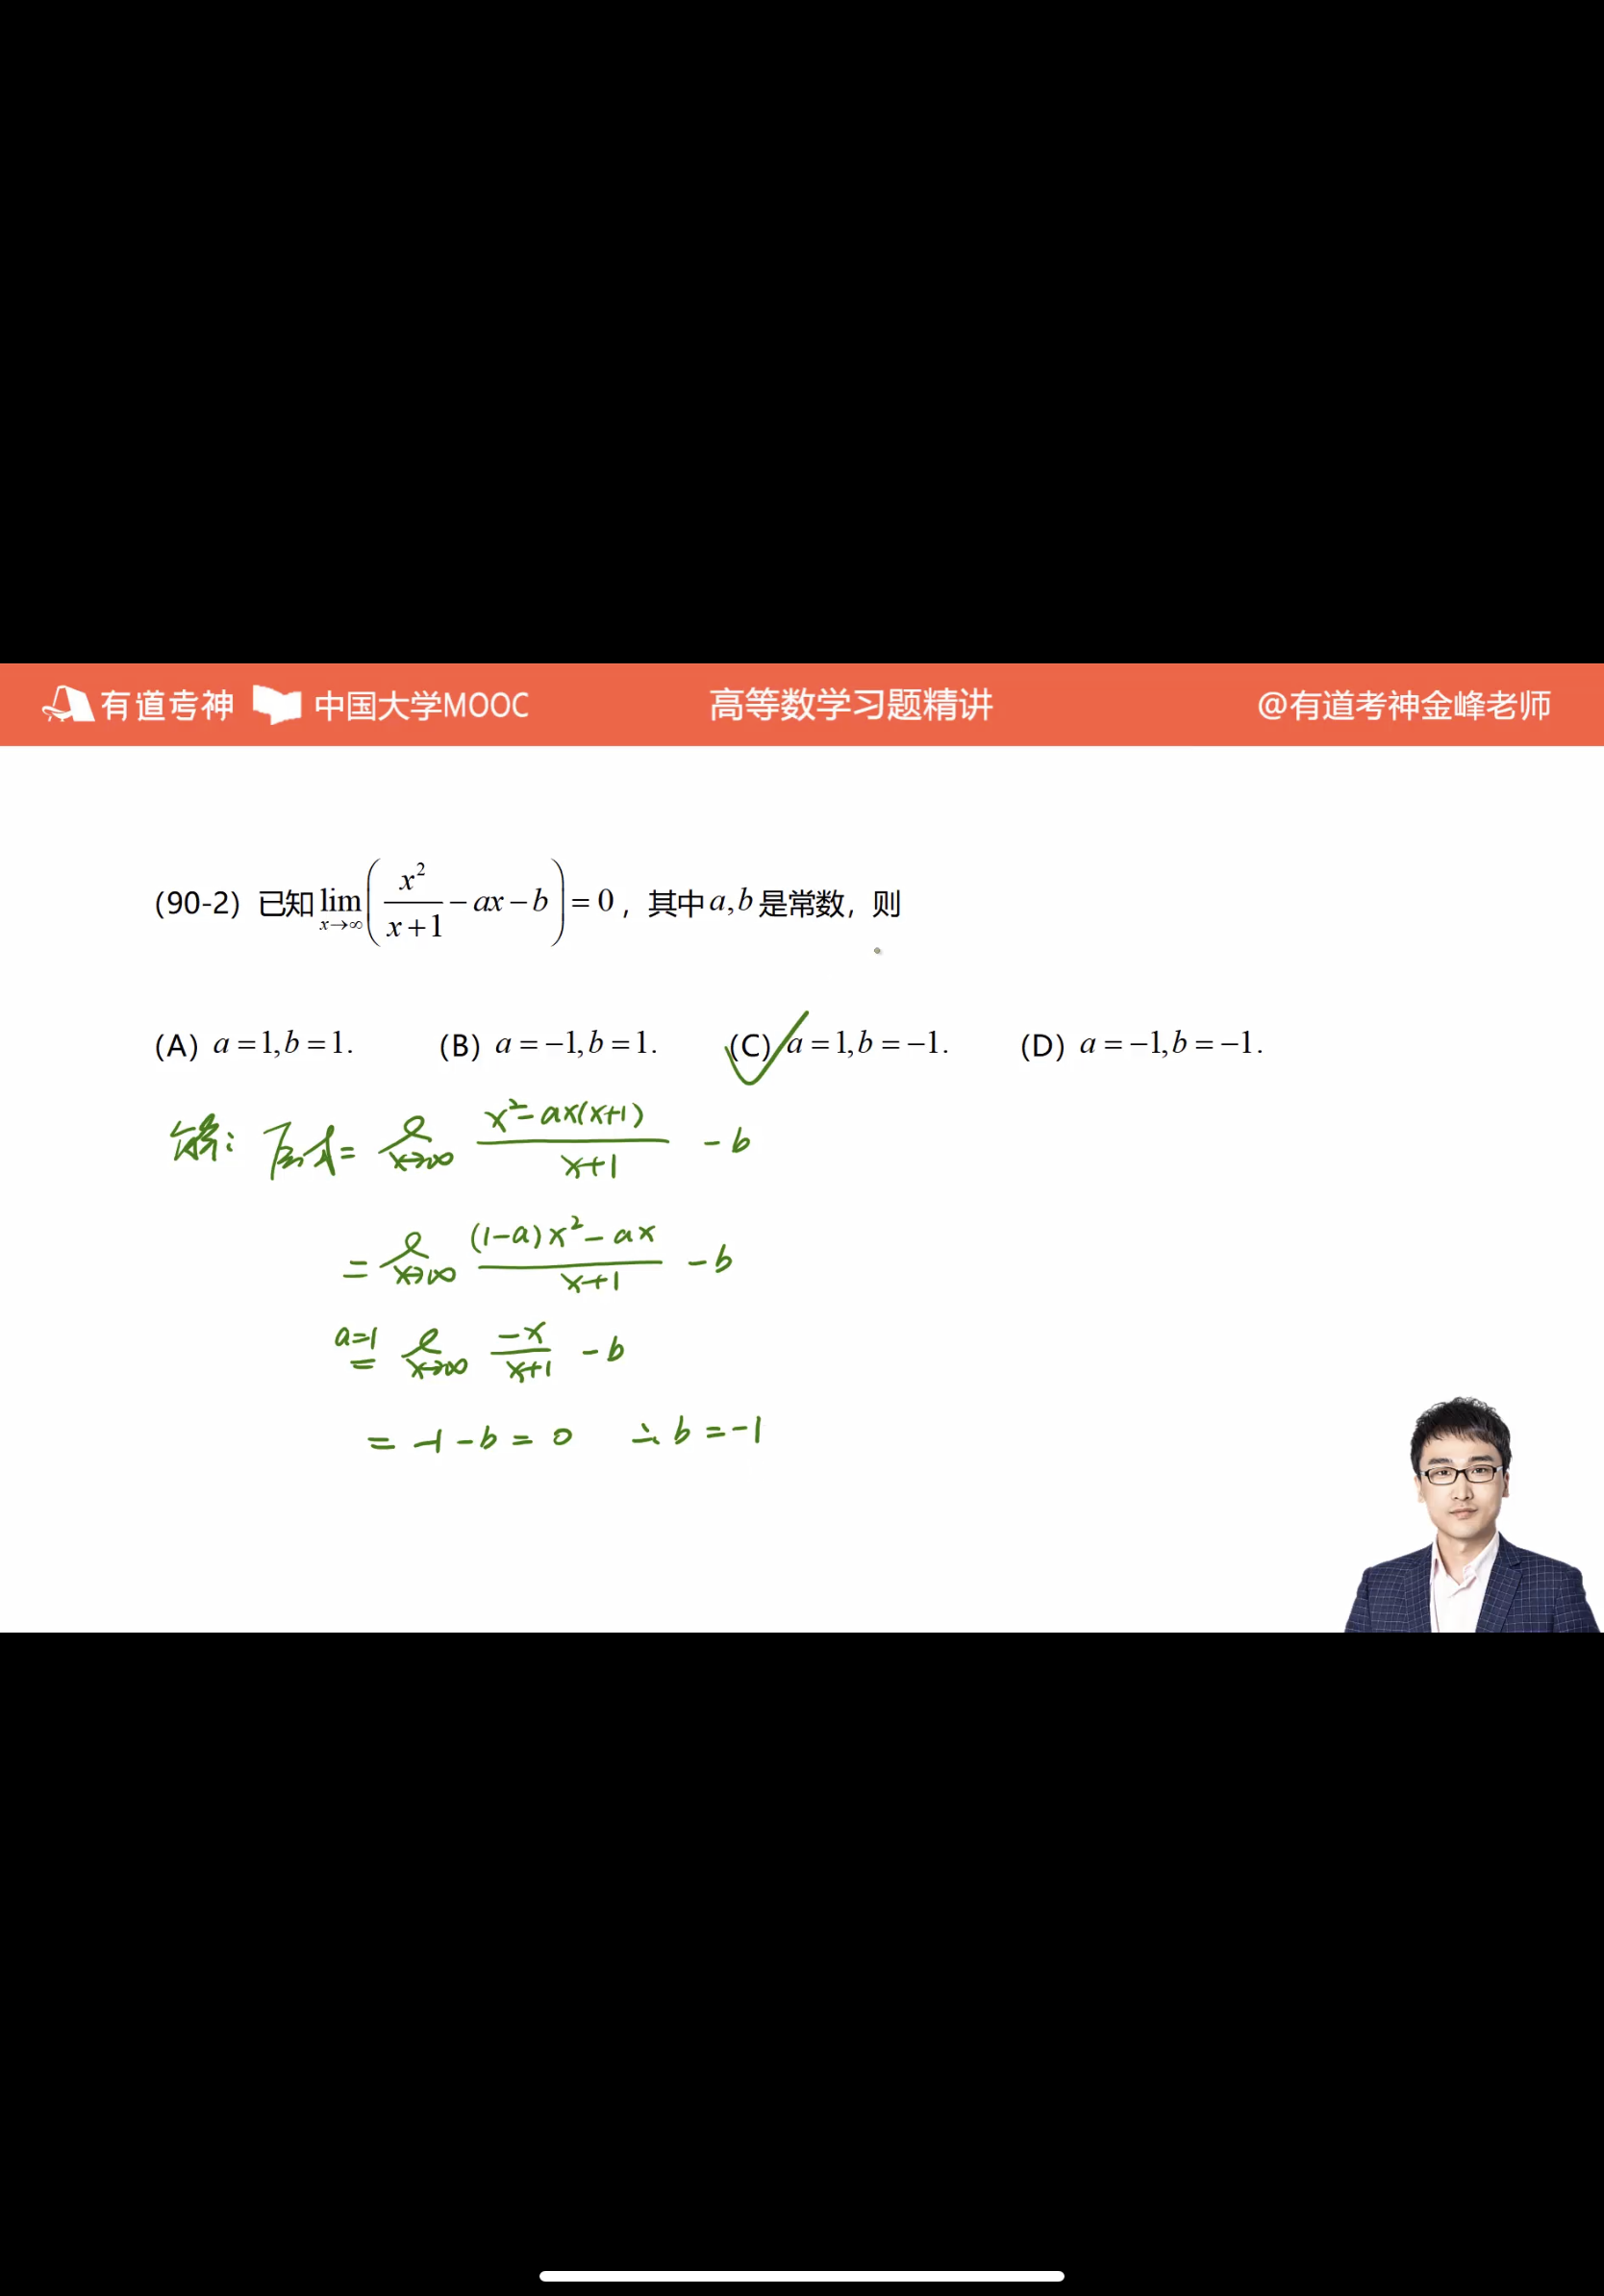 有道考神 中国大学MOOC 高等数学习题精讲 @有道考神金峰老师
(90-2) 已知 lim x→∞ ( x² / x+1 − ax − b ) = 0，其中 a,b 是常数，则
(A) a=1,b=1. (B) a=−1,b=1. (C) a=1,b=−1. (D) a=−1,b=−1.
解: 原式= l x→∞ x²−ax(x+1) / x+1 −b
= l x→∞ (1−a)x²−ax / x+1 −b
a=1 = l x→∞ −x / x+1 −b
= −1−b=0 ∴ b=−1